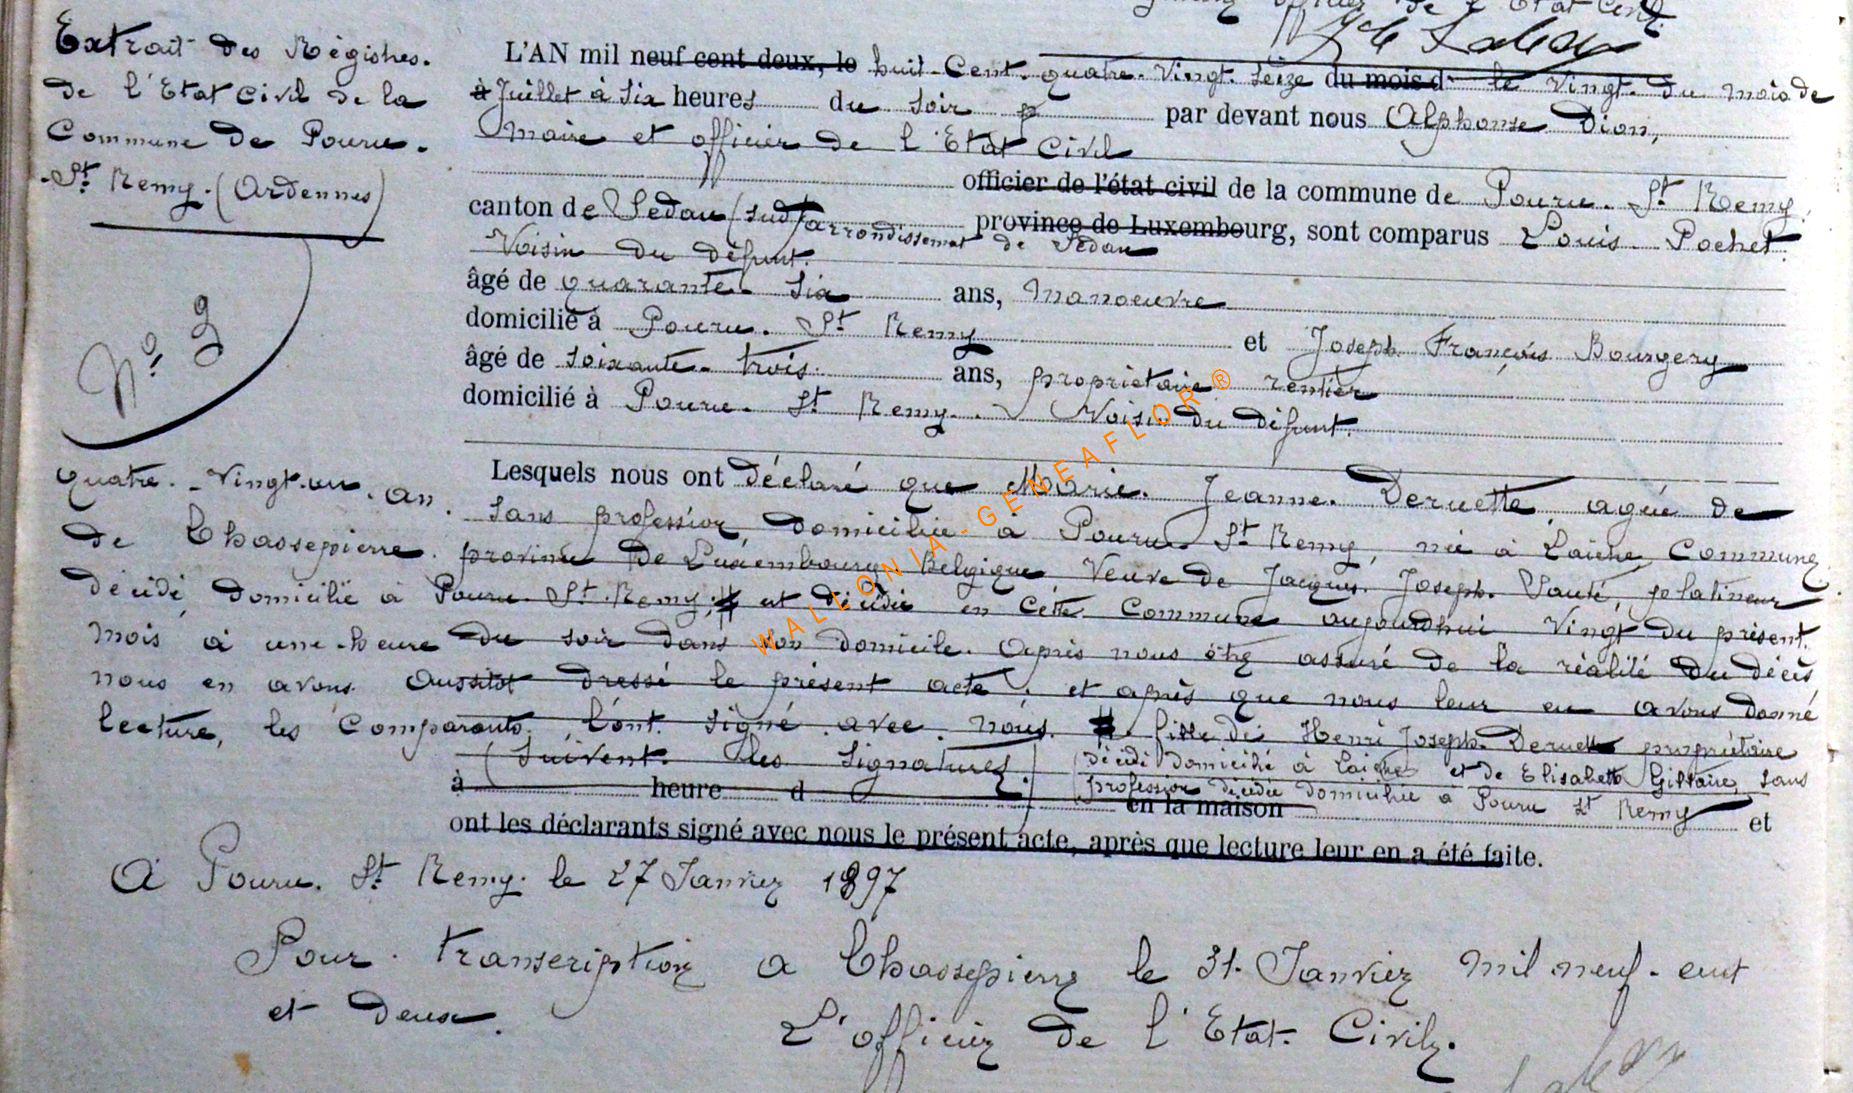 officier de l'Etat Civil
Extrait des Régistres.
de l'Etat civil de la
Commune de Pouru.
St Remy. (Ardennes)
No 9
L'AN mil neuf cent deux, le huit-Cent. quatre-Vingt. Seize du mois d le Vingt. du mois de
à Juillet à six heures du soir par devant nous Alphonse Dion,
Maire et officier de l'Etat Civil
officier de l'état civil de la commune de Pouru. St Remy.
canton de Sedan (sud) arrondissement de Sedan province de Luxembourg, sont comparus Louis Pochet.
Voisin du défunt.
âgé de quarante. six ans, Manoeuvre
domicilié à Pouru. St Remy et Joseph François Bourgery
âgé de soixante-trois. ans, propriétaire rentier
domicilié à Pouru. St Remy. Voisin du défunt.
Lesquels nous ont déclaré que Marie. Jeanne. Deruette, agée de
quatre-Vingt.un. an. sans profession, domiciliée à Pouru St Remy, née à Laiche, Commune
de Chassepierre. province de Luxembourg Belgique, Veuve de Jacques. Joseph. Santé, platineur
décédé, domicilié à Pouru. St. Remy, # est décédée en cette Commune aujourdhui Vingt du présent.
mois à une-heure du soir dans son domicile. Après nous être assuré de la réalité du décès
nous en avons aussitôt dressé le présent acte. et après que nous leur en avons donné
lecture, les Comparants l'ont signé avec nous. # fille de Henri Joseph. Deruette propriétaire
(Suivent. les Signatures.) décédé domicilié à Laiche et de Elisabeth Giltaire, sans
profession décédée domiciliée à Pouru St Remy
à heure d en la maison et
ont les déclarants signé avec nous le présent acte, après que lecture leur en a été faite.
A Pouru. St Remy. le 27 Janvier 1897
Pour. transcription a Chassepierre le 31. Janvier mil neuf-cent
et deux.
L'officier de l'Etat-Civil.
WALLONIA-GENEAFLOR®